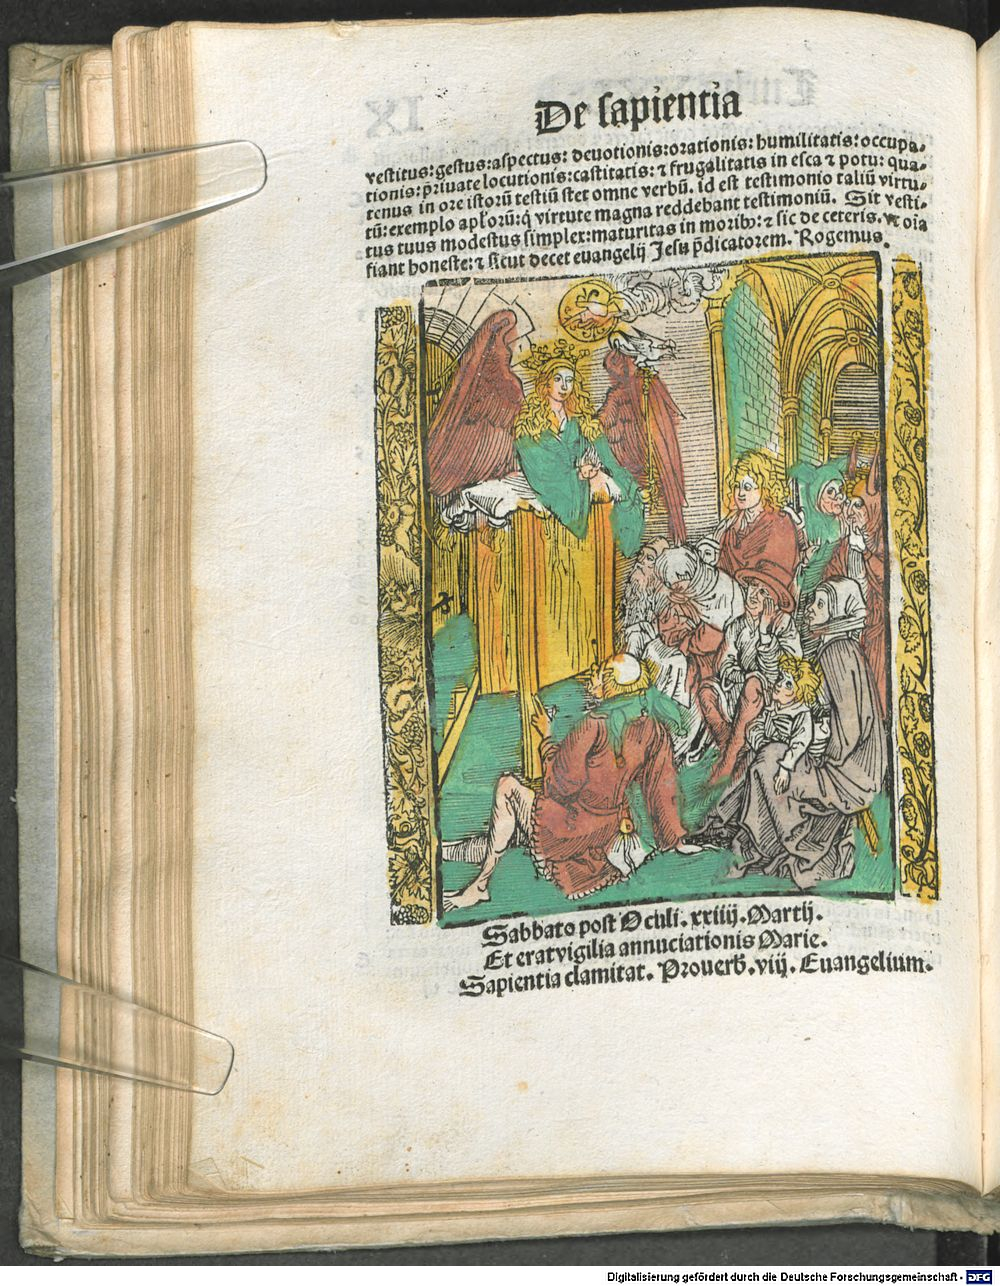 De sapientia
vestitus: gestus: aspectus: deuotionis: orationis: humilitatis: occupa-
tionis: p̄riuate locutionis: castitatis: ⁊ frugalitatis in esca ⁊ potu: qua-
tenus in ore istorū testiū stet omne verbū. id est testimonio taliū virtu-
tū: exemplo apl'orū: q̇ virtute magna reddebant testimoniū. Sit vesti-
tus tuus modestus simplex: maturitas in moribꝫ: ⁊ sic de ceteris. vt oīa
fiant honeste: ⁊ sicut decet euangelij Jesu p̄dicatorem. Rogemus.
Sabbato post Oculi. xxiiij. Martij.
Et erat vigilia annuciationis Marie.
Sapientia clamitat. Prouerb̄. viij. Euangelium.
Digitalisierung gefördert durch die Deutsche Forschungsgemeinschaft - DFG